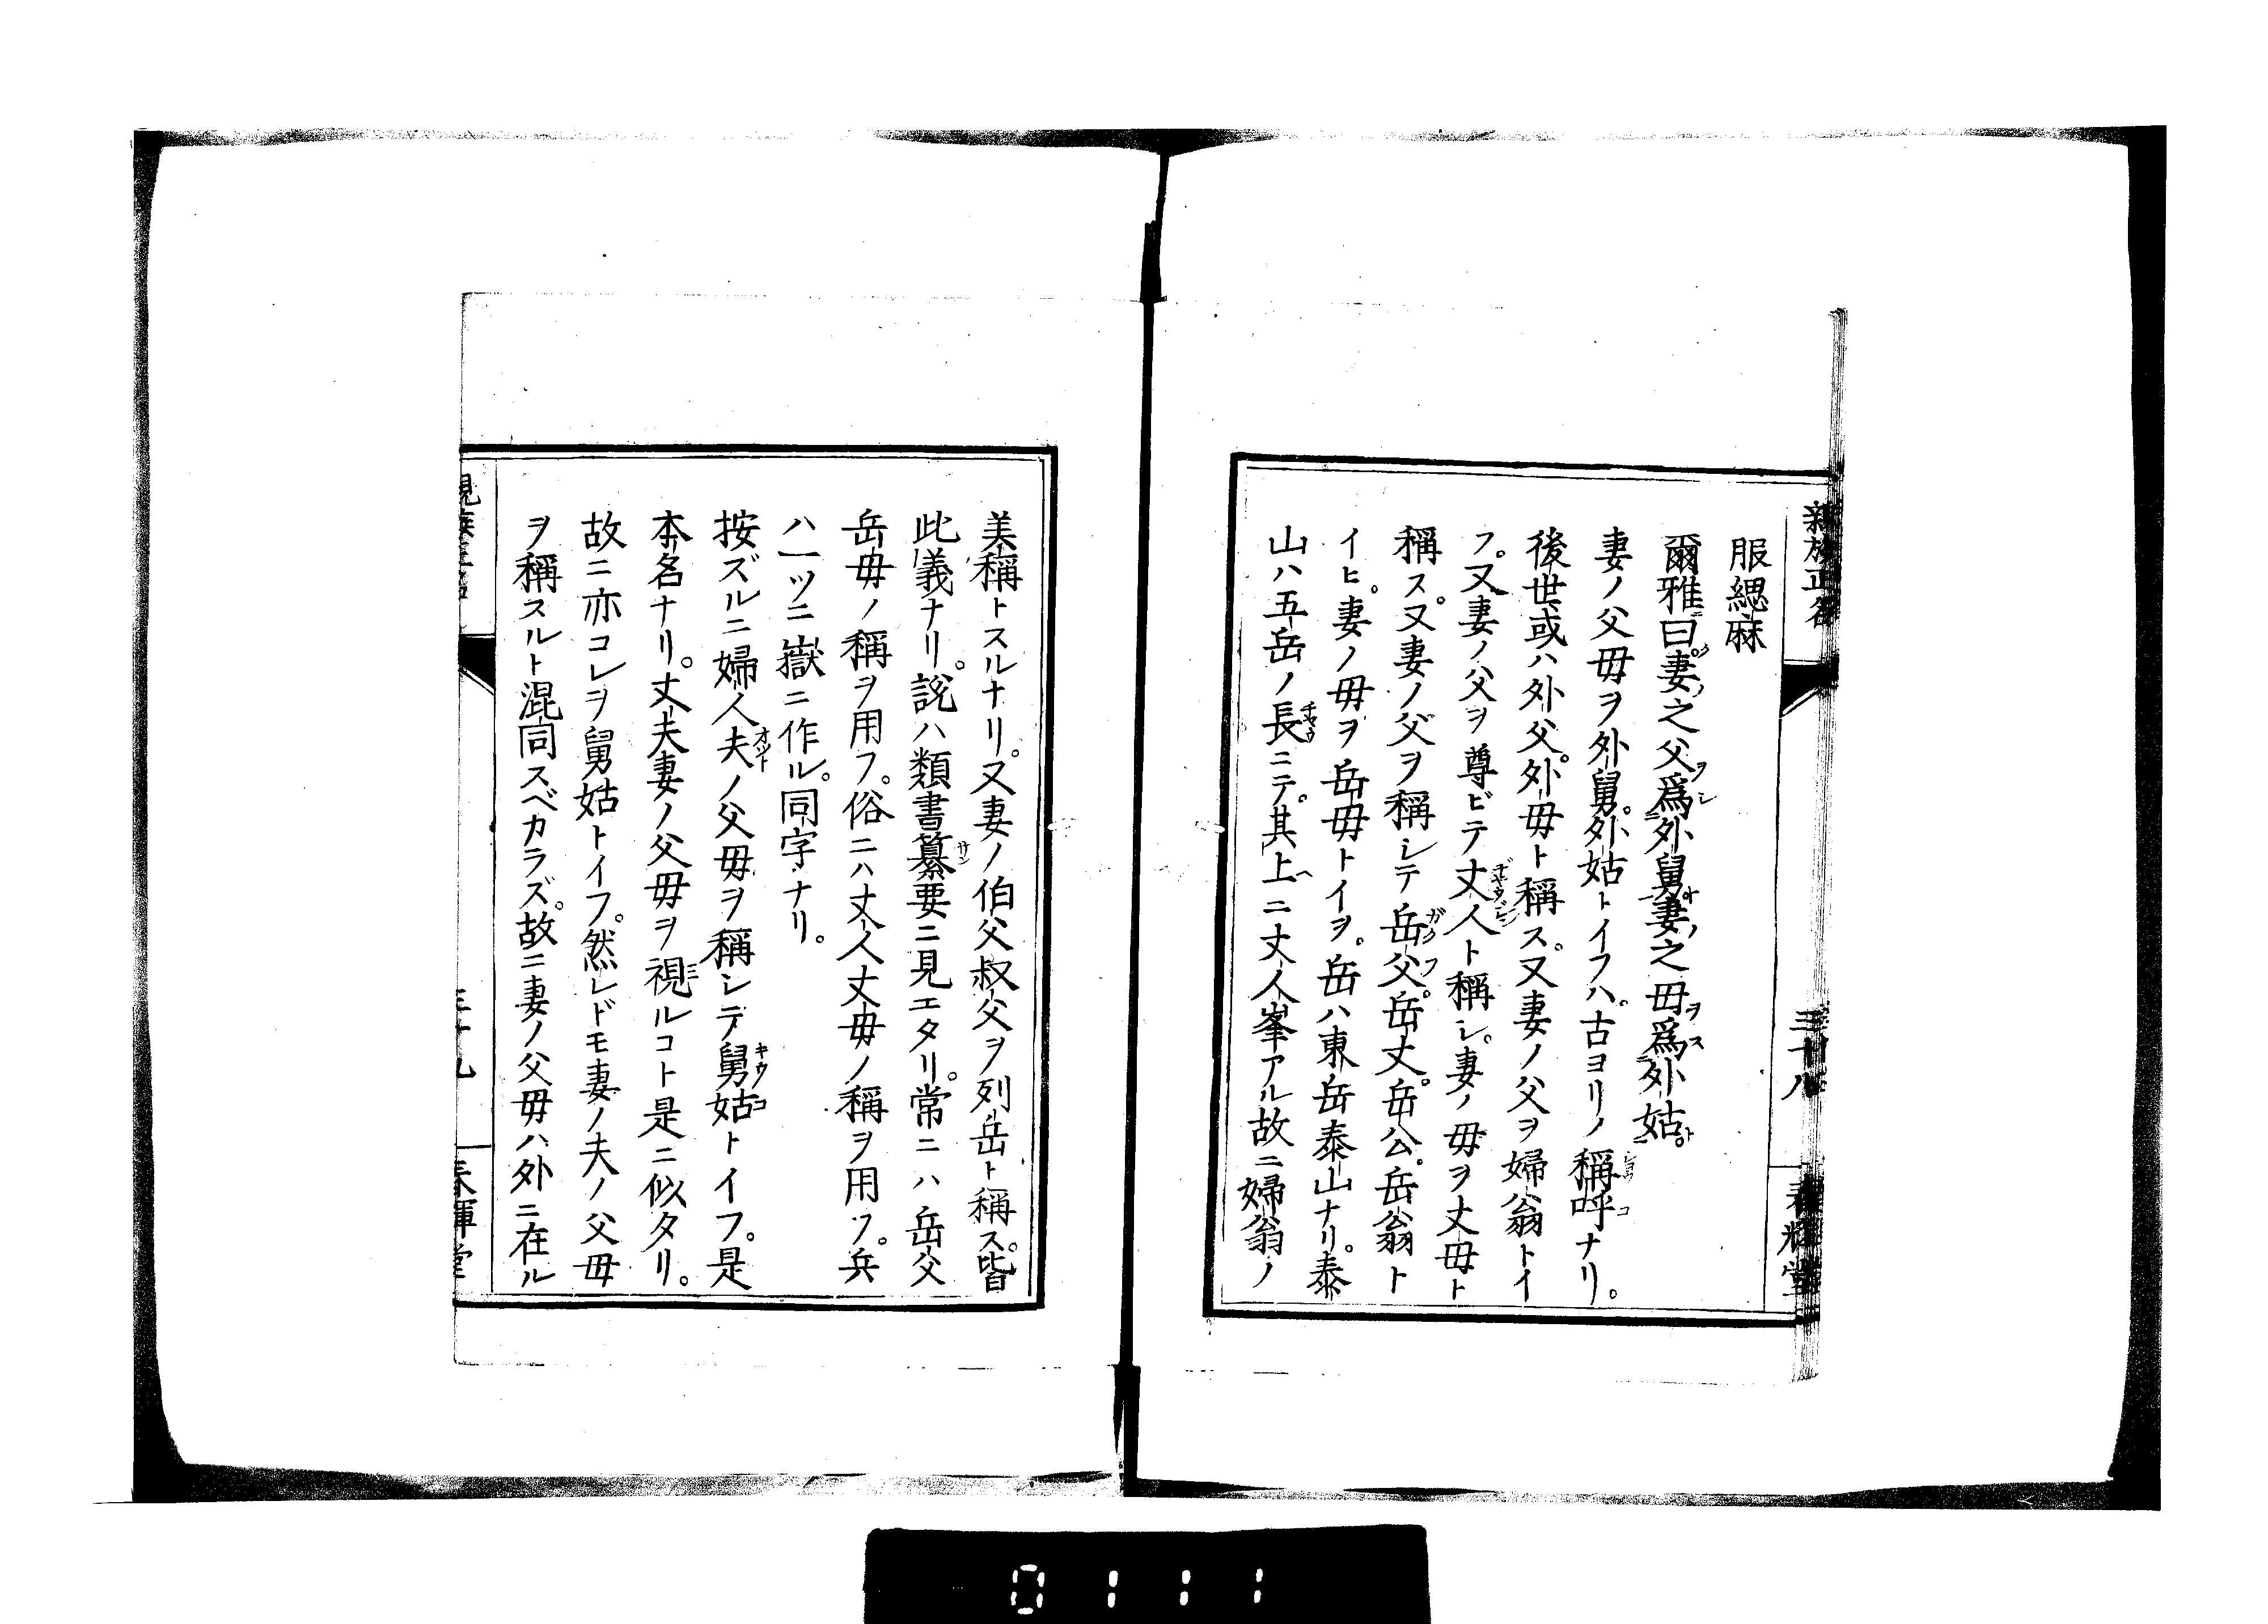 親族正名　三十八　春輝堂
服緦麻
爾雅曰妻之父爲外舅妻之母爲外姑。
妻ノ父母ヲ外舅。外姑トイフハ。古ヨリノ稱呼ナリ。
後世或ハ外父。外母ト稱ス。又妻ノ父ヲ婦翁トイ
フ。又妻ノ父ヲ尊ビテ丈人ト稱シ。妻ノ母ヲ丈母ト
稱ス。又妻ノ父ヲ稱シテ岳父。岳丈。岳公。岳翁ト
イヒ。妻ノ母ヲ岳母トイヲ。岳ハ東岳泰山ナリ。泰
山ハ五岳ノ長ニテ。其上ニ丈人峯アル故ニ婦翁ノ
美稱トスルナリ。又妻ノ伯父叔父ヲ列岳ト稱ス。皆
此義ナリ。説ハ類書纂要ニ見エタリ。常ニハ岳父
岳母ノ稱ヲ用フ。俗ニハ丈人丈母ノ稱ヲ用フ。兵
ハ一ツニ嶽ニ作ル。同字ナリ。
按ズルニ婦人夫ノ父母ヲ稱シテ舅姑トイフ。是
本名ナリ。丈夫妻ノ父母ヲ視ルコト是ニ似タリ。
故ニ亦コレヲ舅姑トイフ。然レドモ妻ノ夫ノ父母
ヲ稱スルト混同スベカラズ。故ニ妻ノ父母ハ外ニ在ル
春輝堂
0111